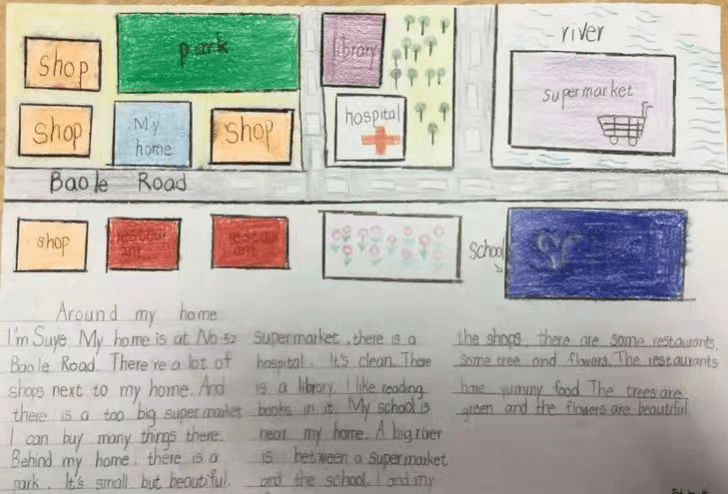 river
park
library
shop
supermarket
shop
My
home
shop
hospital
Baole Road
shop
restaur
ant
restau
ant
School
Around my home
I'm Suye My home is at No.52
Baole Road. There're a lot of
shops next to my home. And
there is a too big supermarket
I can buy many things there.
Behind my home, there is a
park. It's small but beautiful.
supermarket, there is a
hospital. It's clean. There
is a library. I like reading
books in it. My school is
near my home. A big river
is between a supermarket
and the school. I and my
the shops, there are some restaurants,
some tree and flowers. The restaurants
have yummy food The trees are
green and the flowers are beautiful.